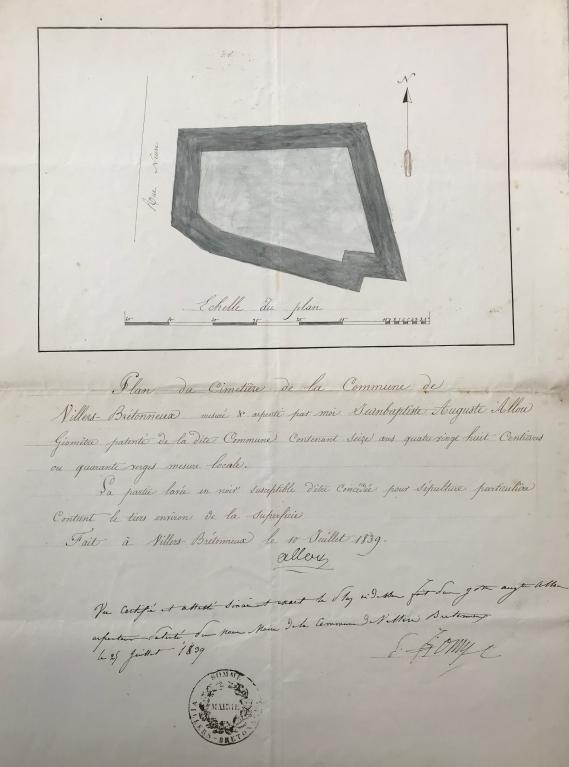 N
Rue Neuve
Echelle du plan
Plan du Cimetière de la Commune de
Villers-Brétonneux mesuré & arpenté par moi Jeanbaptiste Auguste Allou
Géomètre patenté de la dite Commune Contenant Seize ares quatre vingt huit Centiares
ou quarante verges mesure locale.
La partie lavée en noir susceptible d'être concédée pour sépulture particulière
Contient le tiers environ de la superficie
Fait à Villers-Brétonneux le 10 Juillet 1839.
allou
Vu certifié et attesté sincère et exact le plan ci dessus fait par auguste allou
arpenteur par nous Maire de la Commune de Villers Bretonneux
le 25 Juillet 1839
SOMME
MAIRIE
VILLERS-BRETONNEUX